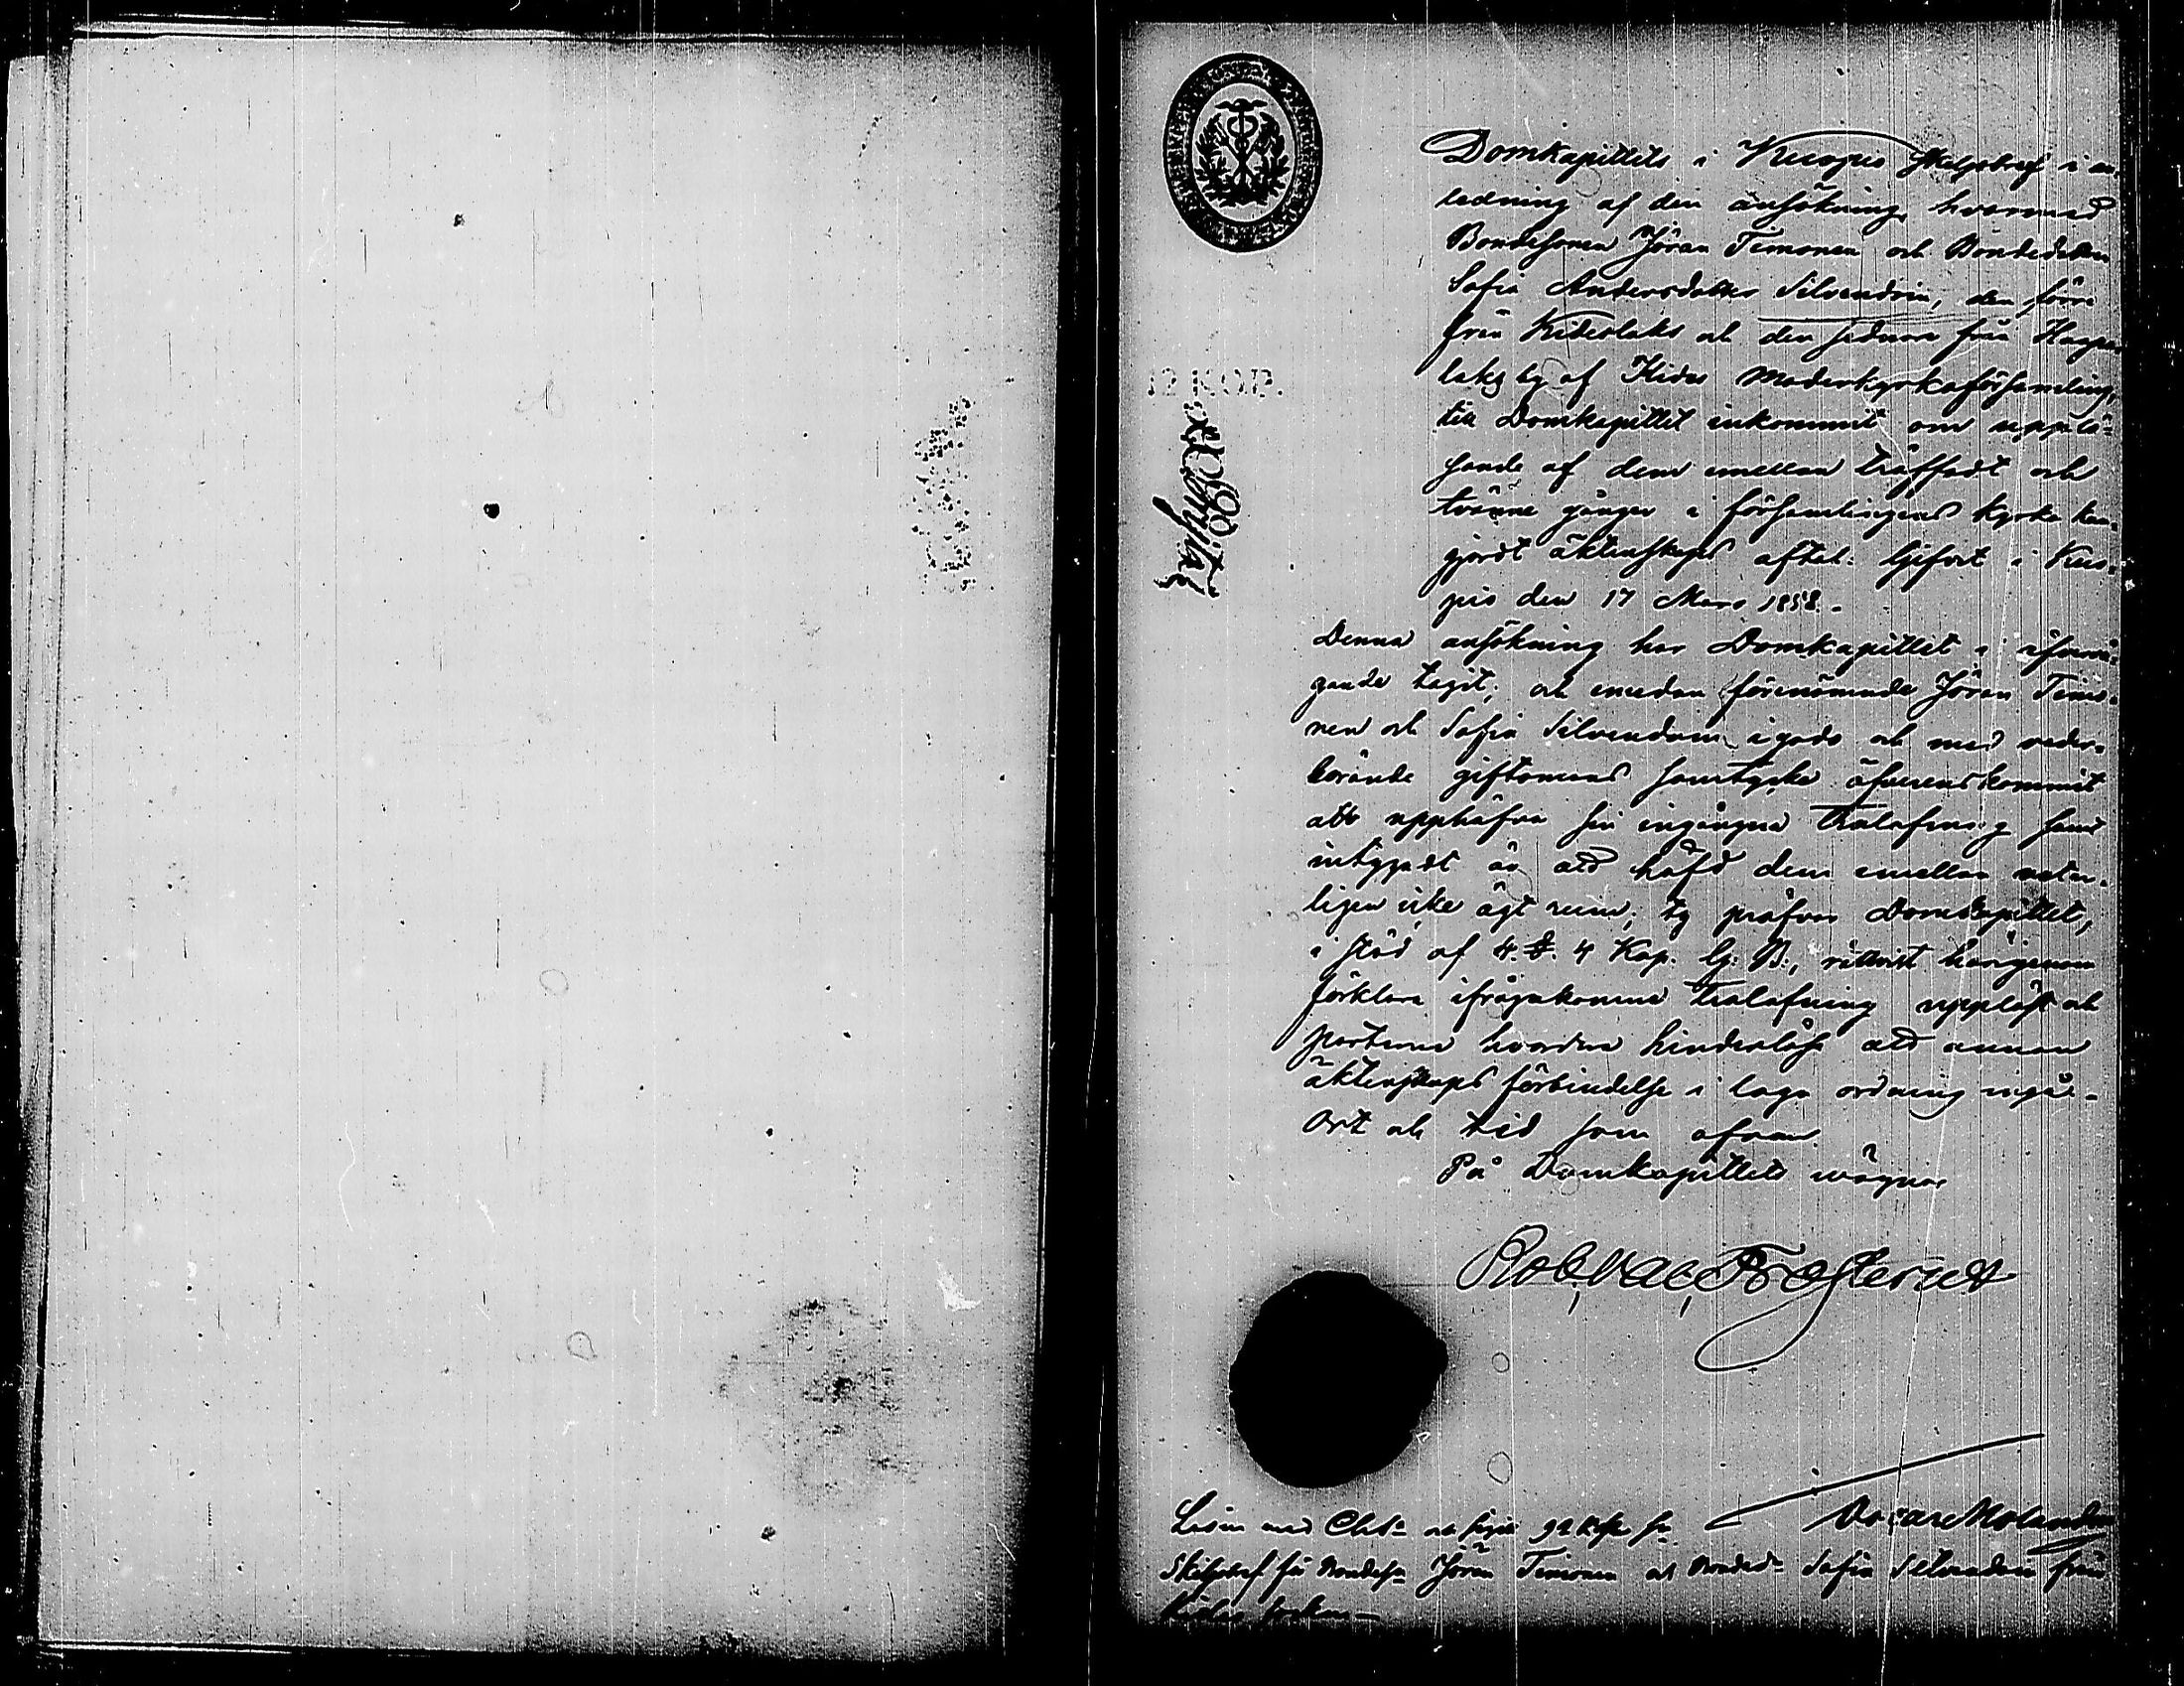 Domkapitlets i Kuopio Skilsobref i an-
ledning af den ansökning, hvarmed
Bondesonen Jöran Timonen och Bondedottren
Sofia Andersdotter Silvendoin, den förre
från Kideslaks och den sednare från Haapa
laks by af Kides Moderkyrkoförsamling,
till Domkapitlet inkommit om upplö-
sande af dem emellan träffadt och
tvänne gånger i församlingens kyrka kun-
gjordt äktenskaps aftal. Gifvet i Kuo-
pio den 17 Mars 1858.
Denna ansökning har Domkapitlet i öfvervä-
gande tagit; och emedan förenämnde Jöran Timo-
nen och Sofia Silvendoin i godo och med veder-
börande giftomans samtycke öfverenskommit
att upphäfva sin ingångna trolofning samt
intygadt är att häfd dem emellan veter-
ligen icke ägt rum; ty pröfvar Domkapitlet,
i stöd af 4. §. 4 Kap. G. B., rättvist härigenom
förklara ifrågakomne trolofning upplöst och
parterne hvardera hinderlöse att annan
äktenskaps förbindelse i laga ordning ingå.
Ort och tid som ofvan
På Domkapitlets wägnar
12 KOP.
Rob. Val. Frosterus
Oscar Molander
Lösen med Chtæ och sigill 92 kop. Sr
Skilsobref för Bondeson Jöran Timonen och Bonded. Sofia Silvendoin från
Kides socken